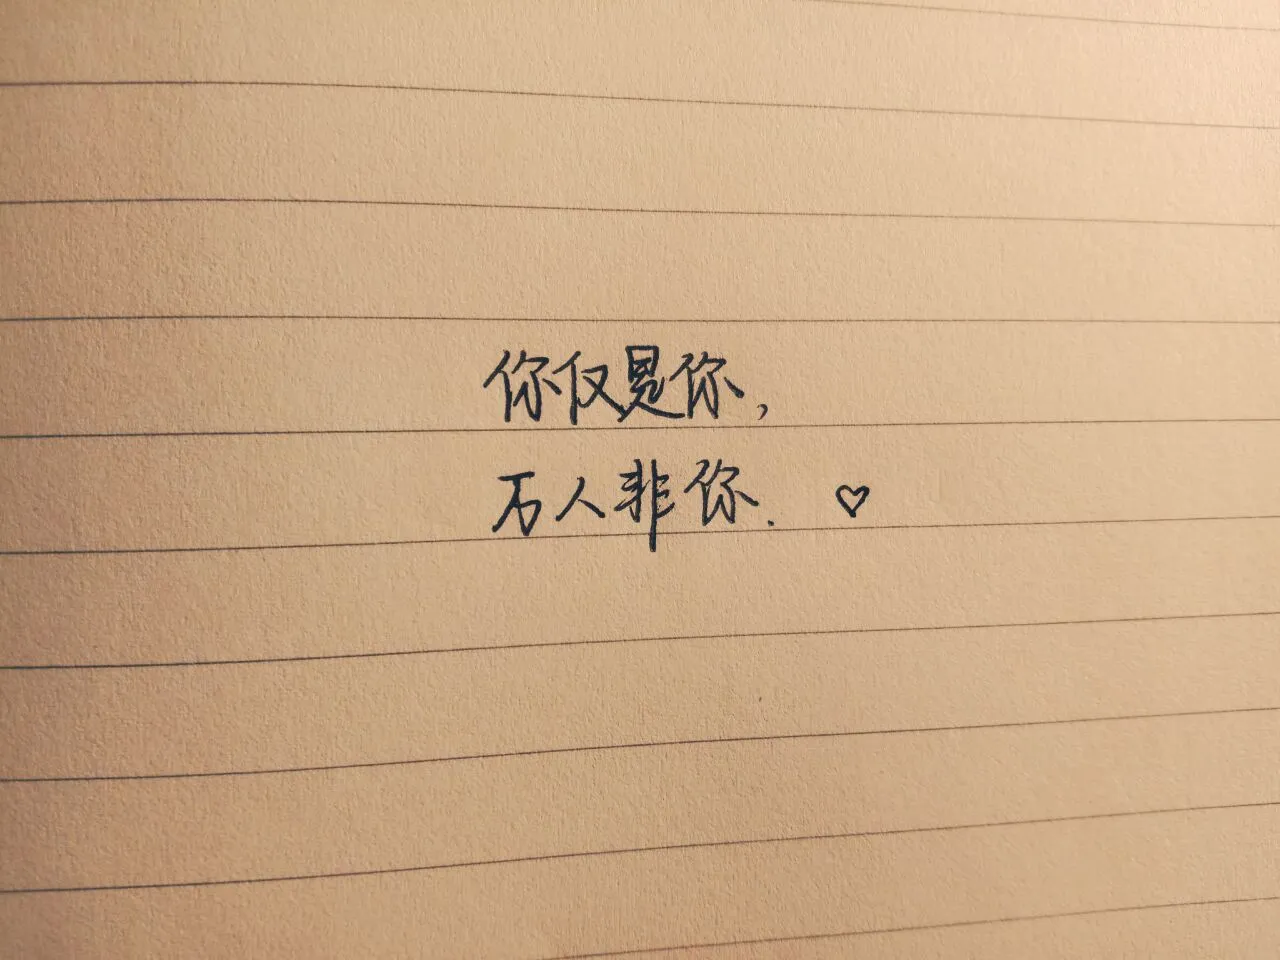 你仅是你，
万人非你. ♡